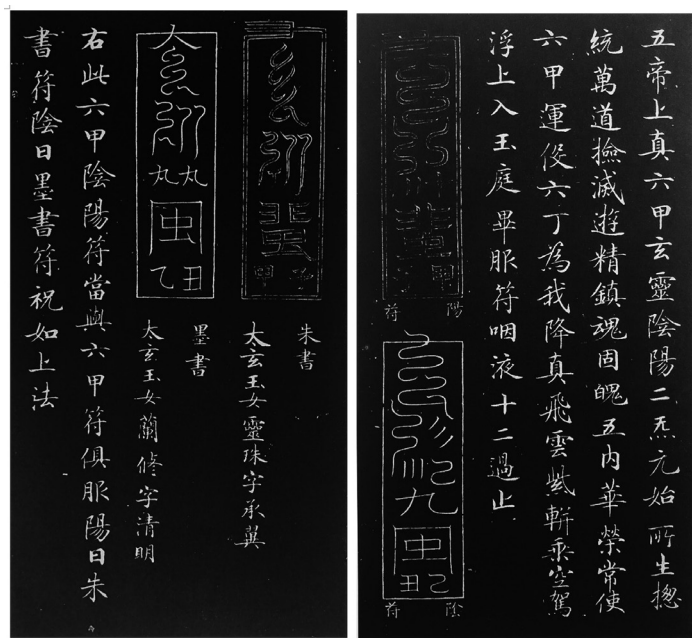 五帝上真六甲玄靈陰陽二炁元始所生揔
統萬道撿滅遊精鎮魂固魄五内華榮常使
六甲運役六丁為我降真飛雲紫軿乘空駕
浮上入玉庭畢服符咽液十二過止
陽
符
甲
陰
符
九
虫
己丑
子甲
朱書
太玄玉女靈珠字承翼
丸丸
虫
丑乙
墨書
太玄玉女蘭脩字清明
右此六甲陰陽符當與六甲符俱服陽日朱
書符陰日墨書符祝如上法